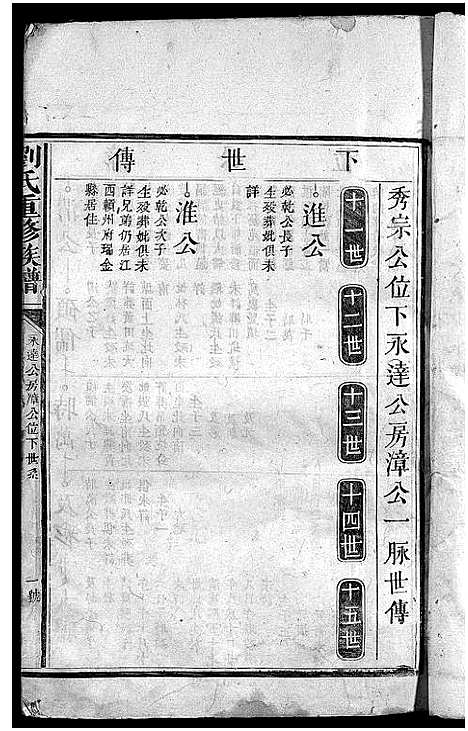 秀宗公位下永達公房漳公一脉世傳
下世傳
十一世
十二世
十三世
十四世
十五世
進公
必乾公長子
生歿葬妣俱未
詳
淮公
必乾公次子
生歿葬妣俱未
詳兄弟仍居江
西贛州府瑞金
縣居住
劉氏重修族譜
永達公房漳公位下世系
一號